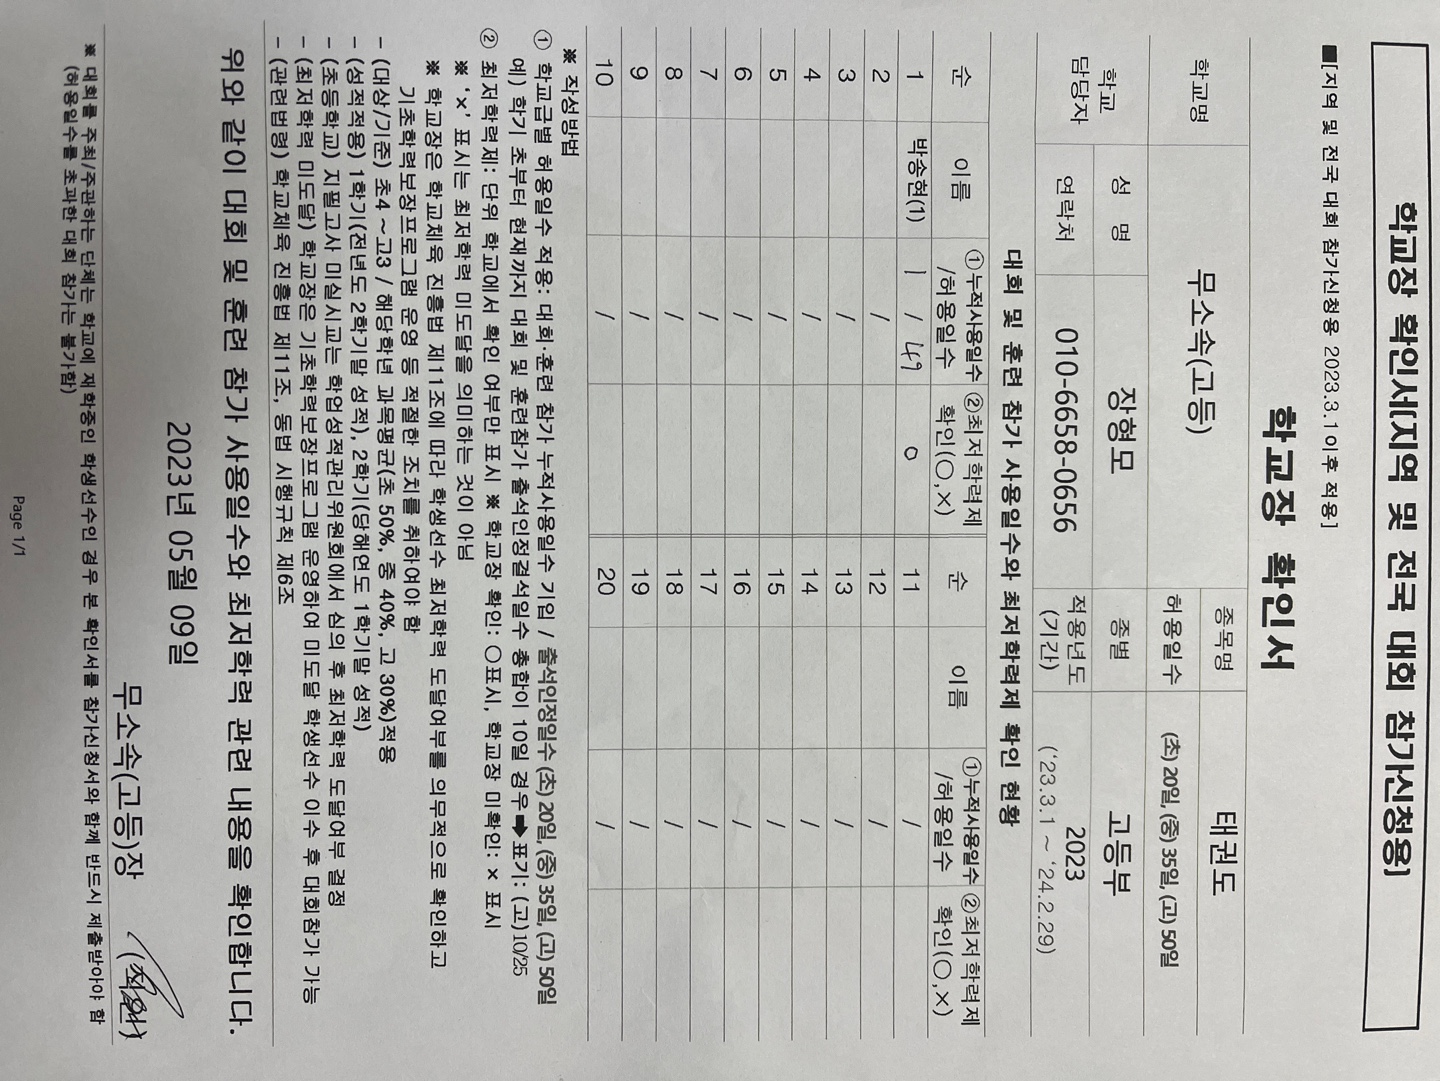 학교장 확인서[지역 및 전국 대회 참가신청용]
■[지역 및 전국 대회 참가신청용 2023.3.1이후 적용]
학교장 확인서
학교명 무소속(고등) 종목명 태권도
허용일수 (초) 20일, (중) 35일, (고) 50일
학교 담당자 성 명 장형모 종별 고등부
연락처 010-6658-0656 적용년도 (기간) 2023 ('23.3.1 ~ '24.2.29)
대회 및 훈련 참가 사용일수와 최저학력제 확인 현황
순 이름 ①누적사용일수 /허용일수 ②최저학력제 확인(○,×) 순 이름 ①누적사용일수 /허용일수 ②최저학력제 확인(○,×)
1 박송현(1) 1 / 49 ○ 11 /
2 / 12 /
3 / 13 /
4 / 14 /
5 / 15 /
6 / 16 /
7 / 17 /
8 / 18 /
9 / 19 /
10 / 20 /
※ 작성방법
① 학교급별 허용일수 적용: 대회·훈련 참가 누적사용일수 기입 / 출석인정일수 (초) 20일, (중) 35일, (고) 50일
예) 학기 초부터 현재까지 대회 및 훈련참가 출석인정결석일수 총합이 10일 경우 ➡ 표기: (고) 10/25
② 최저학력제: 단위 학교에서 확인 여부만 표시 ※ 학교장 확인: ○표시, 학교장 미확인: × 표시
※ '×' 표시는 최저학력 미도달을 의미하는 것이 아님
※ 학교장은 학교체육 진흥법 제11조에 따라 학생선수 최저학력 도달여부를 의무적으로 확인하고
기초학력보장프로그램 운영 등 적절한 조치를 취하여야 함
- (대상/기준) 초4 ~ 고3 / 해당학년 과목평균(초 50%, 중 40%, 고 30%)적용
- (성적적용) 1학기(전년도 2학기말 성적), 2학기(당해연도 1학기말 성적)
- (초등학교) 지필고사 미실시교는 학업성적관리위원회에서 심의 후 최저학력 도달여부 결정
- (최저학력 미도달) 학교장은 기초학력보장프로그램 운영하여 미도달 학생선수 이수 후 대회참가 가능
- (관련법령) 학교체육 진흥법 제11조, 동법 시행규칙 제6조
위와 같이 대회 및 훈련 참가 사용일수와 최저학력 관련 내용을 확인합니다.
2023년 05월 09일
무소속(고등)장 (직인)
※ 대회를 주최/주관하는 단체는 학교에 재학중인 학생선수인 경우 본 확인서를 참가신청서와 함께 반드시 제출받아야 함
(허용일수를 초과한 대회 참가는 불가함)
Page 1/1